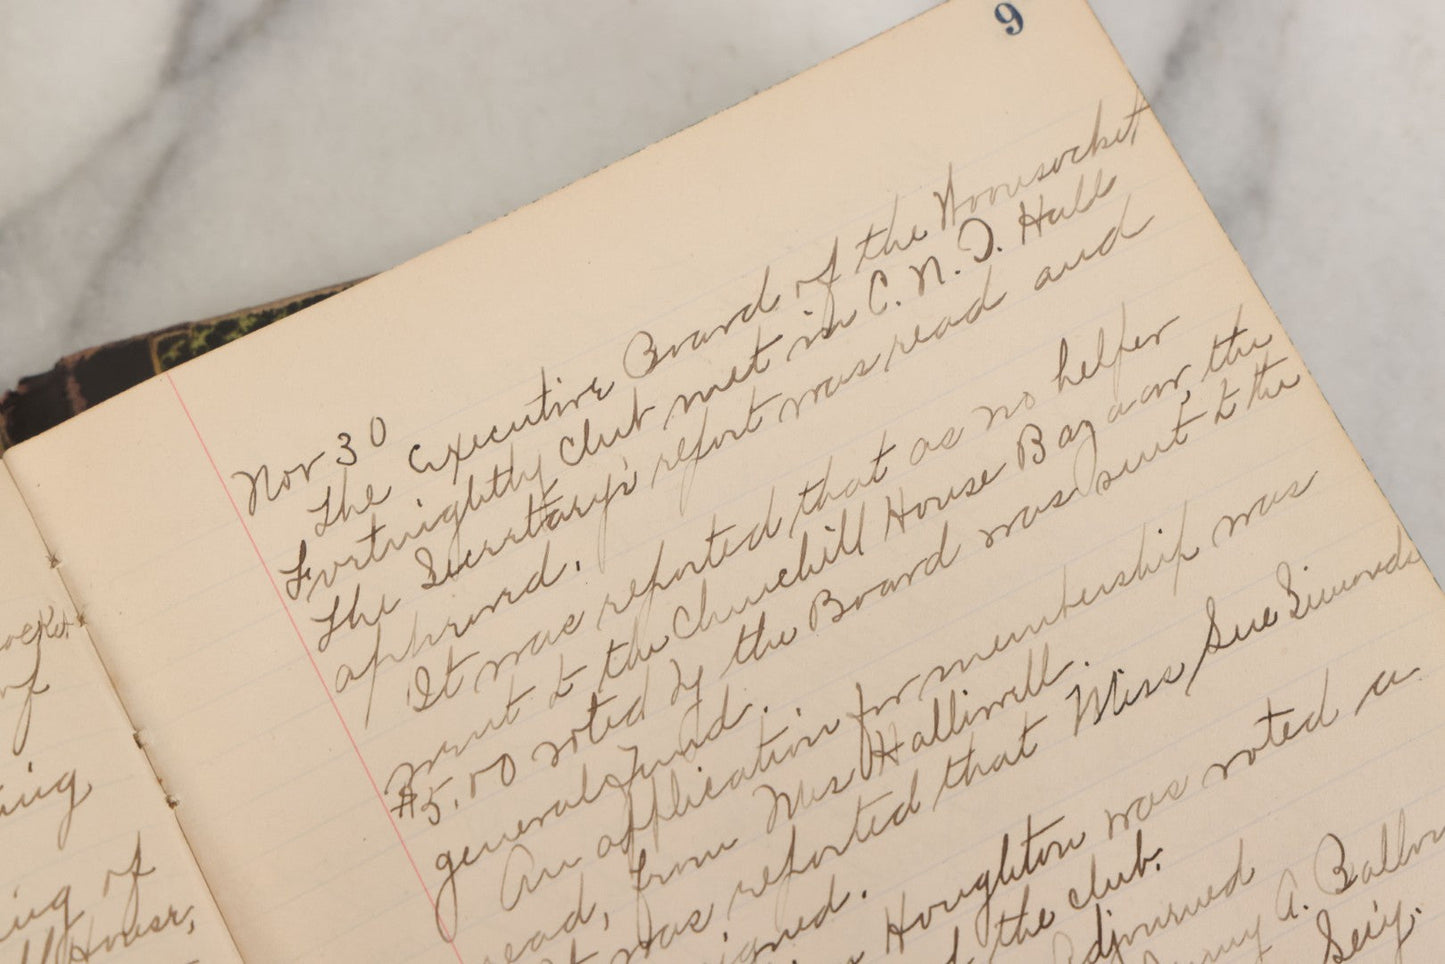 9
Nov 30
The Executive Board of the Woonsocket
Fortnightly Club met in C. N. D. Hall
The Secretary's report was read and
approved.
It was reported that as no helper
went to the Churchill House Bazaar, the
$5.00 voted by the Board was sent to the
general fund.
An application for membership was
read, from Mrs Halliwell.
It was reported that Miss Sue Simonds
signed.
Houghton was voted a
the club.
Adjourned
A. Ballou
Sec'y.
of
ing
ing of
House,